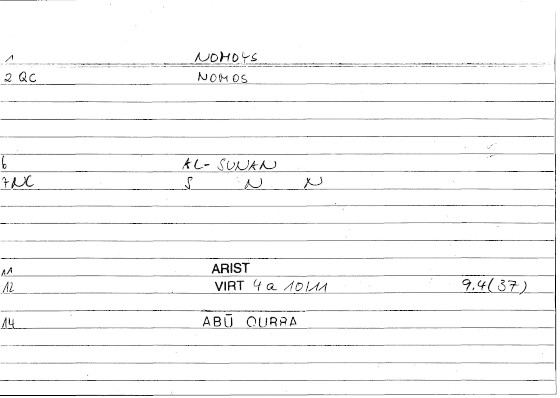 1 NOMOYS
2 QC NOMOS
6 AL-SUNAN
7NC S N N
11 ARIST
12 VIRT 4a 10/11 9.4(37)
14 ABŪ QURRA